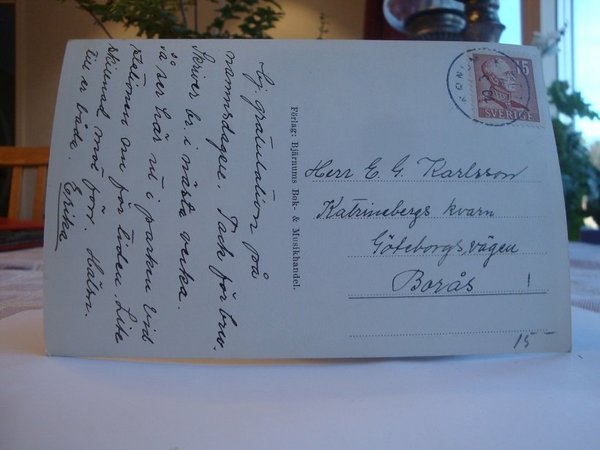 Hj. gratulation på
namnsdagen. Tack för brev.
Skriver br. i nästa vecka.
Så ser här ut i parken vid
stationen om för tiden. Lite
skillnad mot förr. Hälsn.
till er båda. Erika
Förlag: Bjärnums Bok- & Musikhandel.
15
SVERIGE
Herr E. G. Karlsson
Katrinebergs kvarn
Göteborgsvägen
Borås !
15